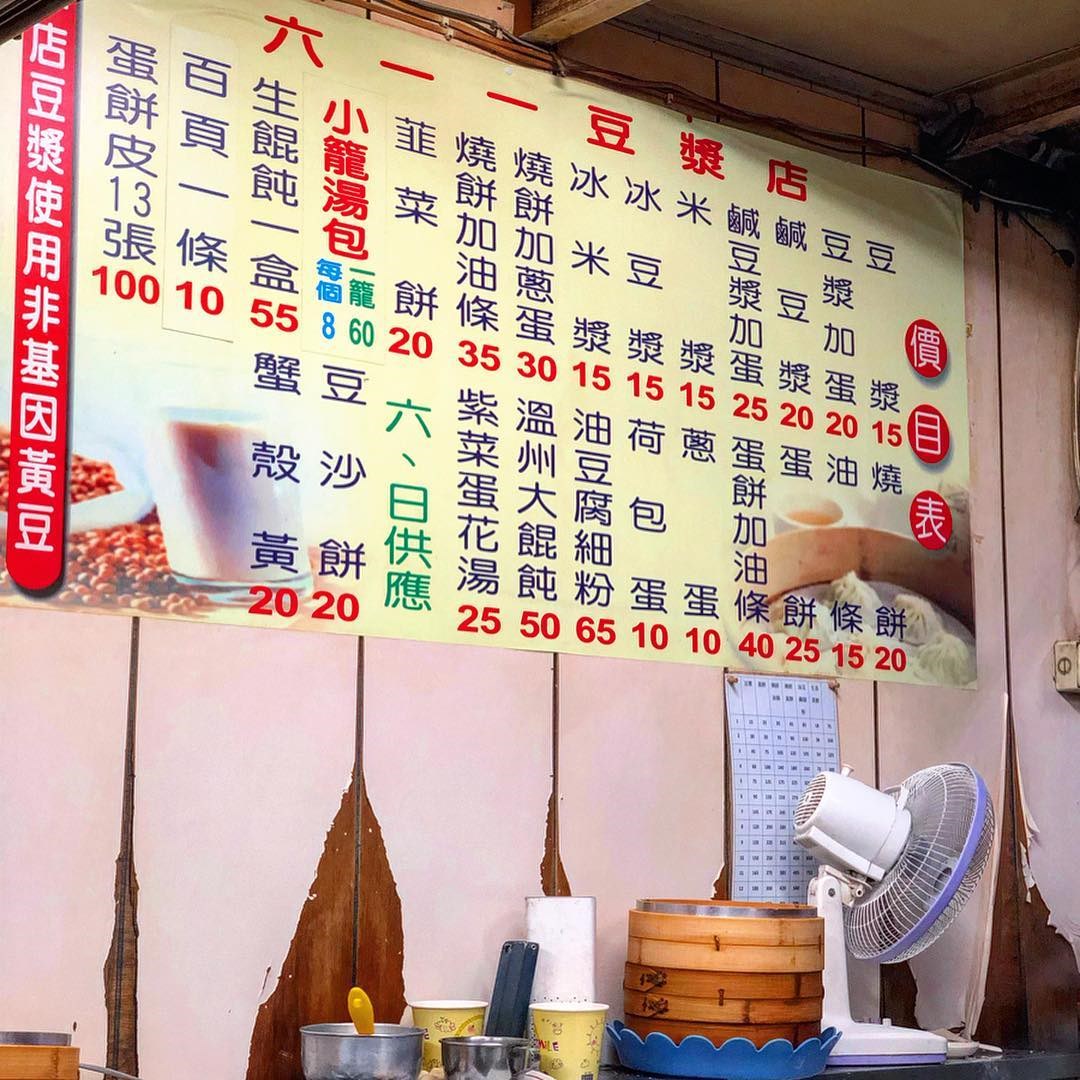 六一一豆漿店
價目表
豆漿15
豆漿加蛋20
鹹豆漿20
鹹豆漿加蛋25
米漿15
冰豆漿15
冰米漿15
燒餅加蔥蛋30
燒餅加油條35
韮菜餅20
小籠湯包
一籠60
每個8
生餛飩一盒55
百頁一條10
蛋餅皮13張100
燒餅20
油條15
蛋餅25
蛋餅加油條40
蔥蛋10
荷包蛋10
油豆腐細粉65
溫州大餛飩50
紫菜蛋花湯25
六、日供應
豆沙餅20
蟹殼黃20
店豆漿使用非基因黃豆